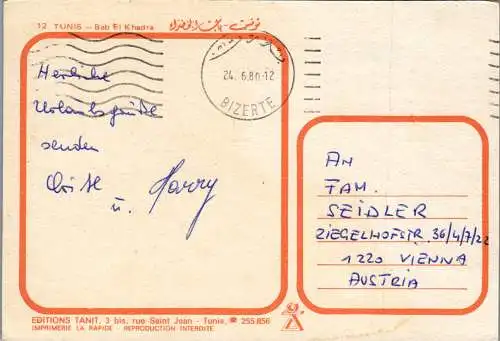 12 TUNIS — Bab El Khadra تونس - باب الخضراء
24.6.80-12
BIZERTE
Herzliche
Urlaubsgrüße
senden
u. Harry
AN
FAM.
SEIDLER
ZIEGELHOFSTR. 36/4/7/22
1220 VIENNA
AUSTRIA
EDITIONS TANIT, 3 bis, rue Saint Jean - Tunis, ☎ 255.856
IMPRIMERIE LA RAPIDE - REPRODUCTION INTERDITE